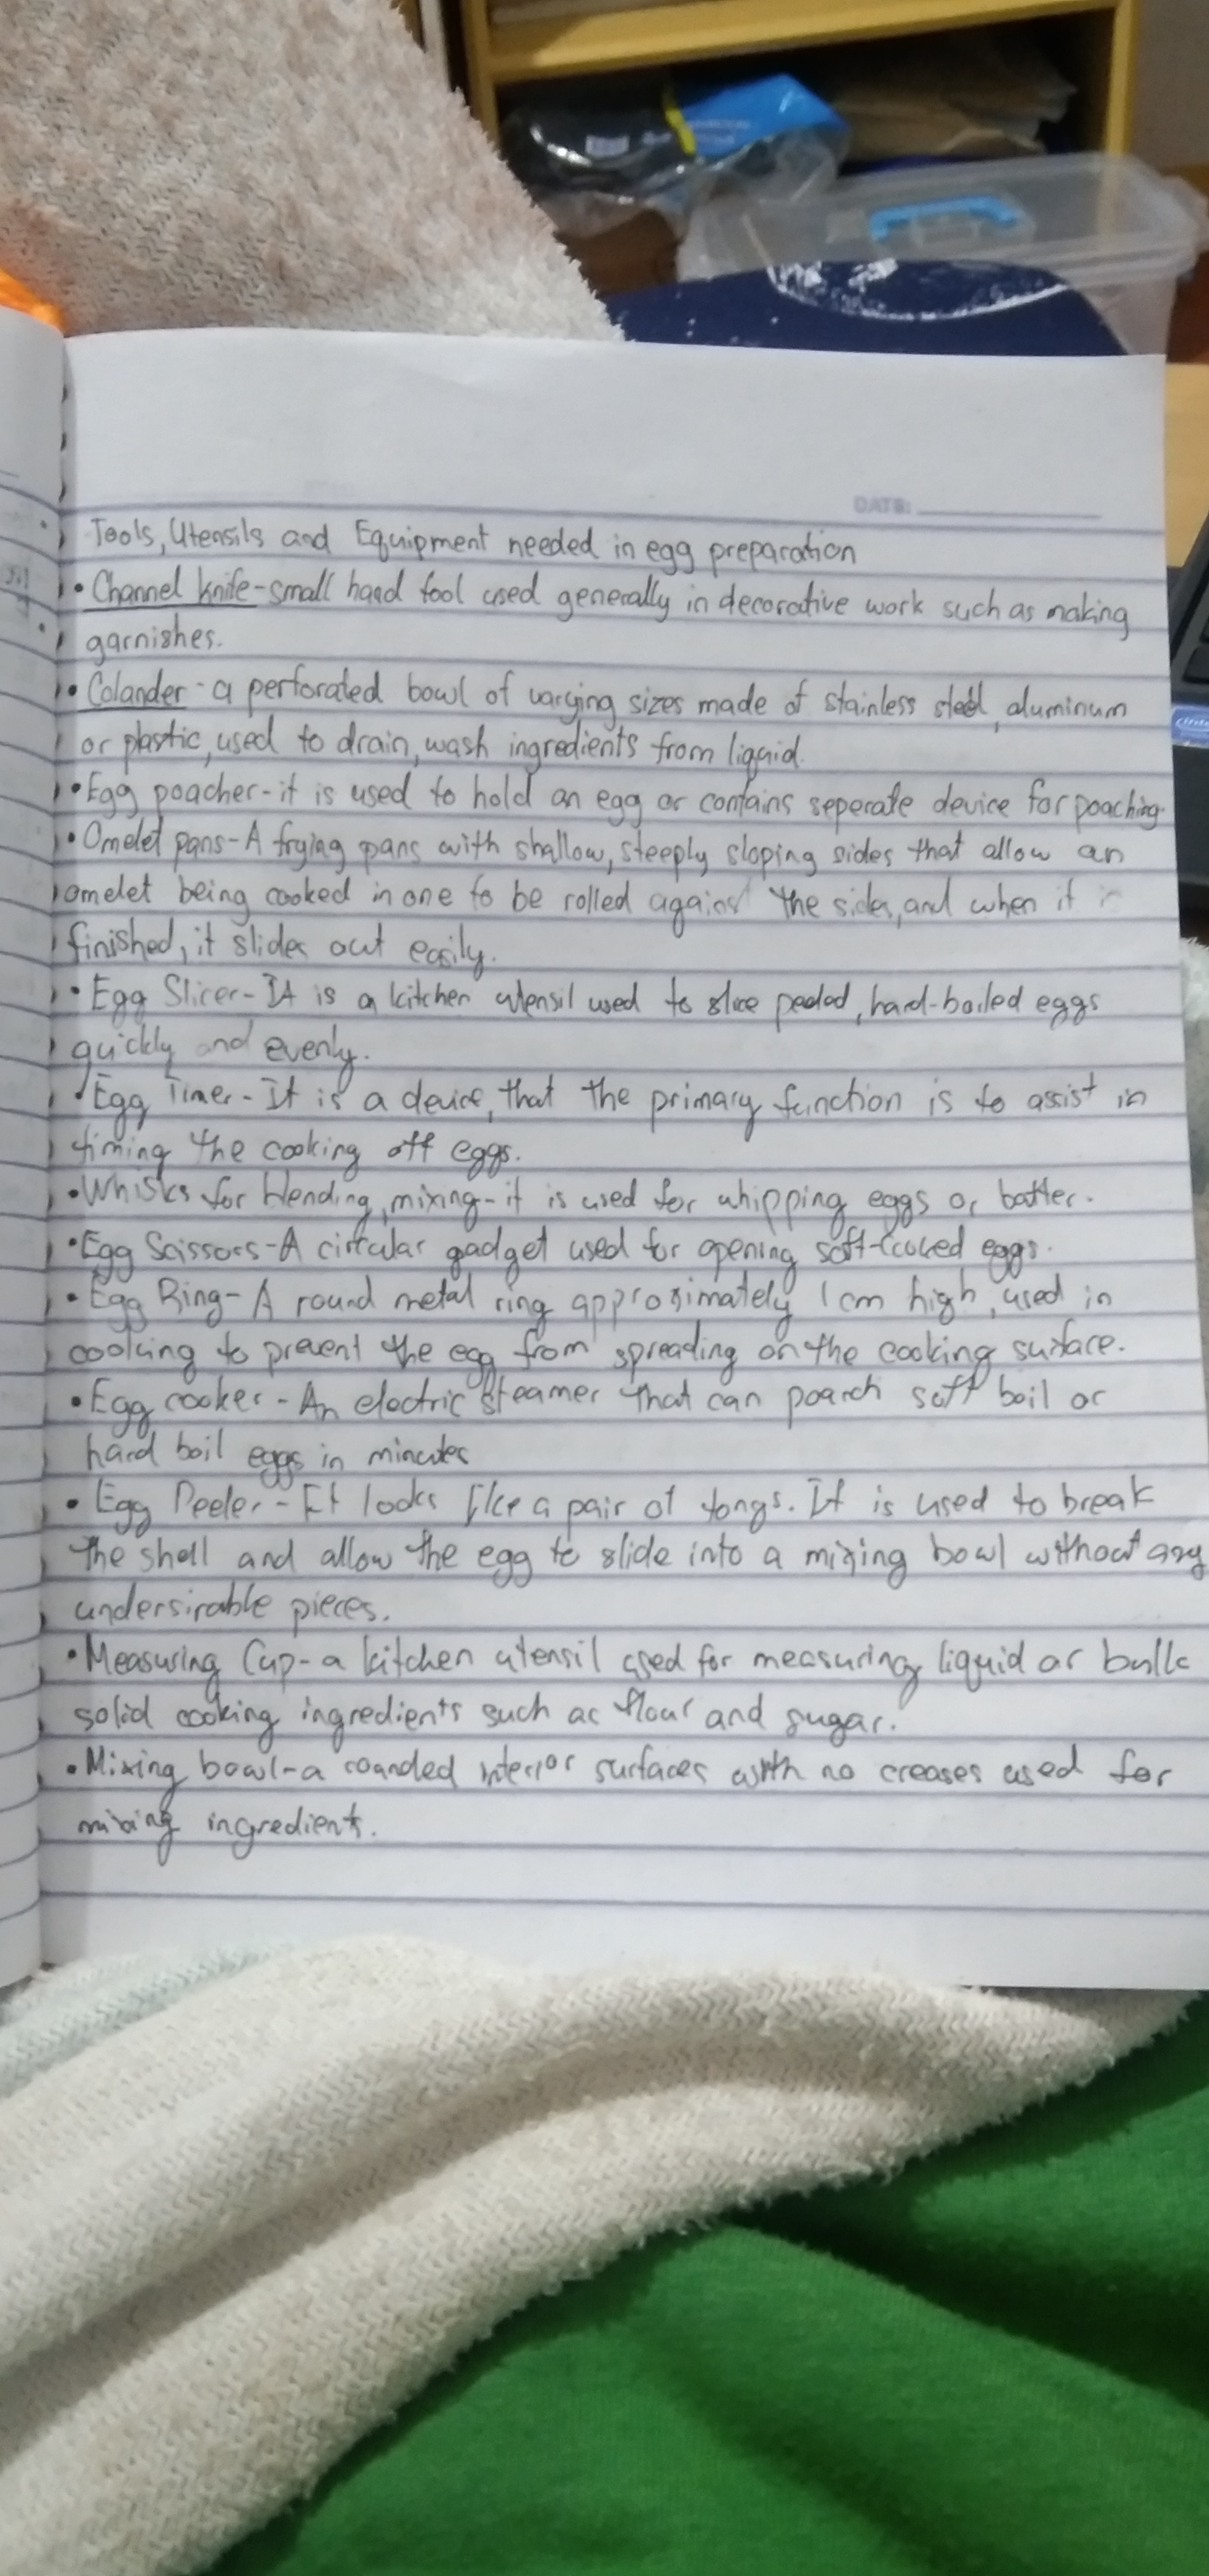 DATE:
Tools, Utensils and Equipment needed in egg preparation
• Channel knife-small hand tool used generally in decorative work such as making
garnishes.
• Colander - a perforated bowl of varying sizes made of stainless steel, aluminum
or plastic, used to drain, wash ingredients from liquid.
• Egg poacher-it is used to hold an egg or contains seperate device for poaching.
• Omelet pans-A frying pans with shallow, steeply sloping sides that allow an
omelet being cooked in one to be rolled against the sides, and when it is
finished, it slides out easily.
• Egg Slicer-It is a kitchen utensil used to slice peeled, hard-boiled eggs
quickly and evenly.
• Egg Timer - It is a device, that the primary function is to assist in
timing the cooking off eggs.
• Whisks for blending, mixing-it is used for whipping eggs or batter.
• Egg Scissors-A circular gadget used for opening soft-cooked eggs.
• Egg Ring- A round metal ring approximately 1 cm high, used in
cooking to prevent the egg from spreading on the cooking surface.
• Egg cooker - An electric steamer that can poarch soft boil or
hard boil eggs in minutes
• Egg Peeler - It looks like a pair of tongs. It is used to break
the shell and allow the egg to slide into a mixing bowl without any
undersirable pieces.
• Measuring Cup-a kitchen utensil used for measuring liquid or bulk
solid cooking ingredients such as flour and sugar.
• Mixing bowl-a rounded interior surfaces with no creases used for
mixing ingredient.